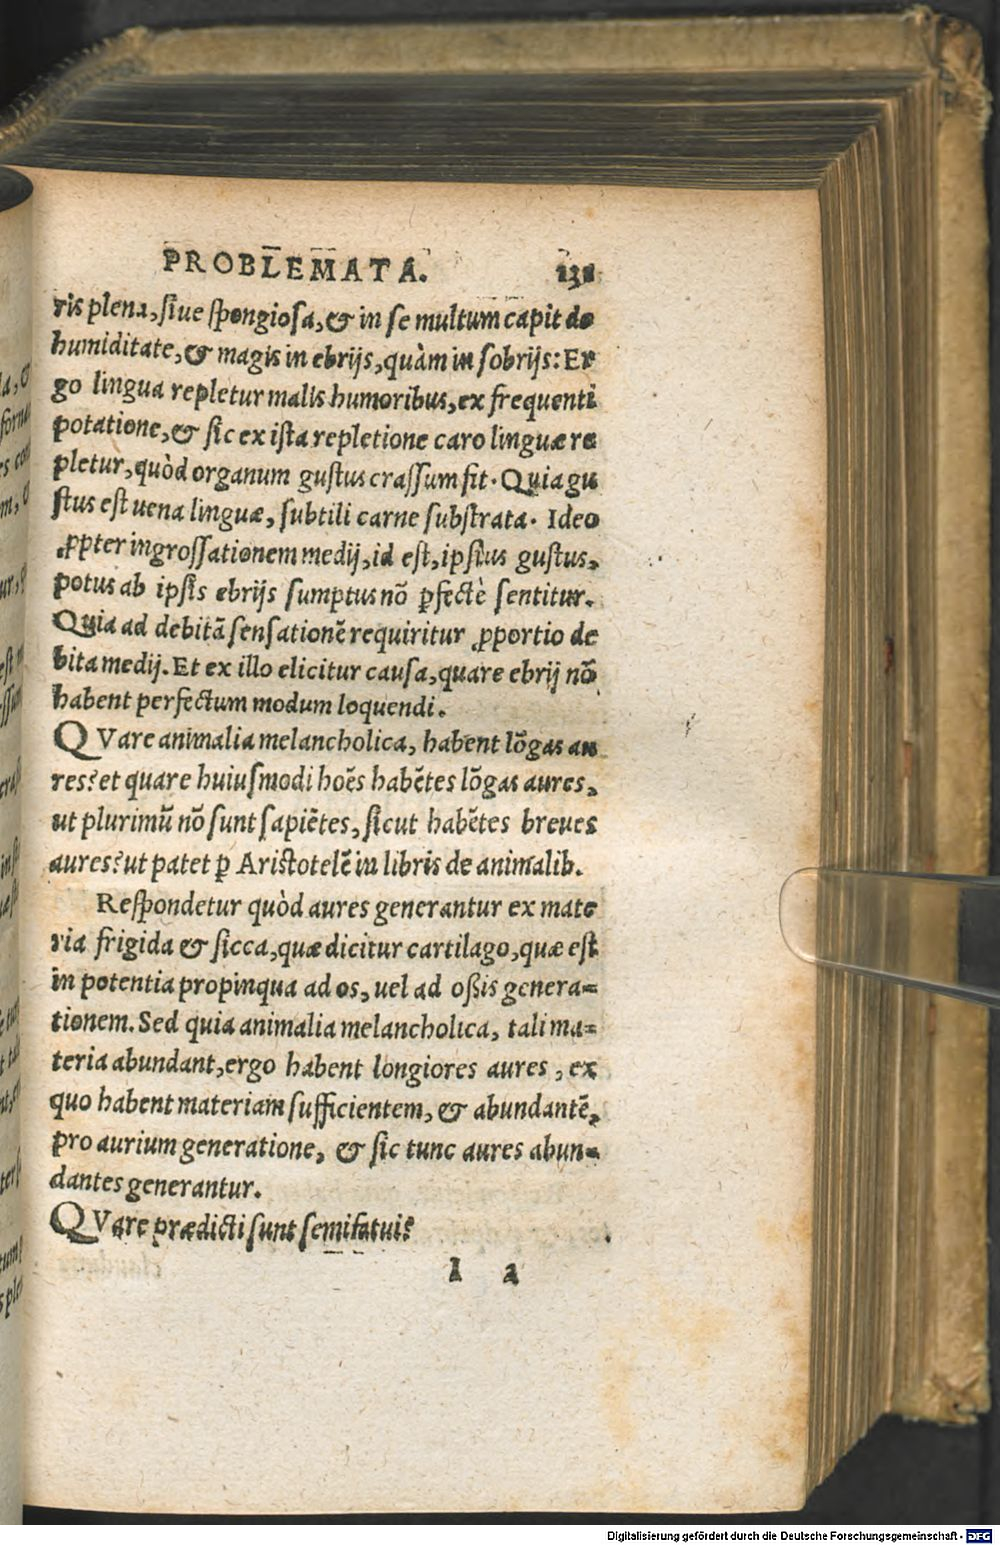 PROBLEMATA. 131
ris plena, siue spongiosa, & in se multum capit de
humiditate, & magis in ebrijs, quàm in sobrijs: Er
go lingua repletur malis humoribus, ex frequenti
potatione, & sic ex ista repletione caro linguæ re
pletur, quòd organum gustus crassum fit. Quia gu
stus est uena linguæ, subtili carne substrata. Ideo
ꝓpter ingrossationem medij, id est, ipsius gustus,
potus ab ipsis ebrijs sumptus nõ ꝑfectè sentitur.
Quia ad debitã sensationẽ requiritur ꝓportio de
bita medij. Et ex illo elicitur causa, quare ebrij nõ
habent perfectum modum loquendi.
QVare animalia melancholica, habent lõgas au
res? et quare huiusmodi hoẽs habẽtes lõgas aures,
ut plurimũ nõ sunt sapiẽtes, sicut habẽtes breues
aures? ut patet ꝑ Aristotelẽ in libris de animalib.
Respondetur quòd aures generantur ex mate
ria frigida & sicca, quæ dicitur cartilago, quæ est
in potentia propinqua ad os, uel ad oßis genera=
tionem. Sed quia animalia melancholica, tali ma=
teria abundant, ergo habent longiores aures, ex
quo habent materiam sufficientem, & abundantẽ,
pro aurium generatione, & sic tunc aures abun=
dantes generantur.
QVare prædicti sunt semifatui?
l 2
Digitalisierung gefördert durch die Deutsche Forschungsgemeinschaft - DFG